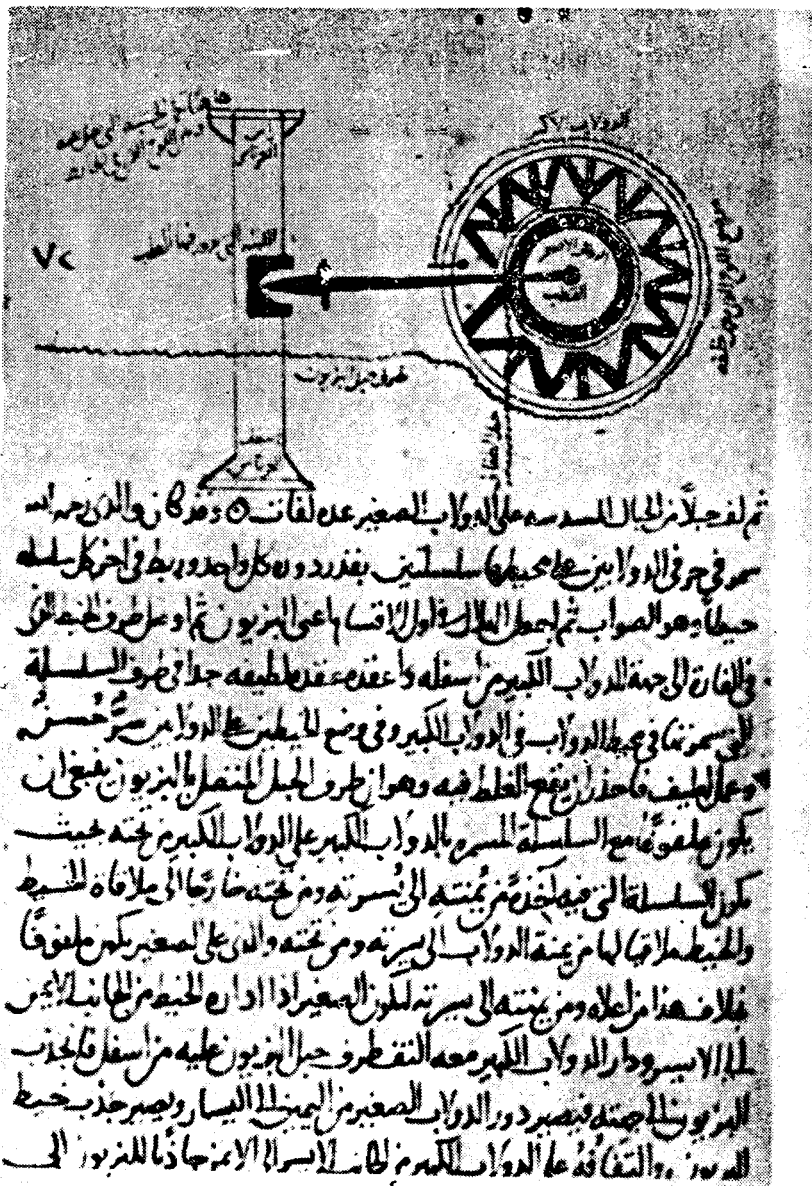 الدولاب الاكبر
راس
القطب
طرف حبل البزيون
٧٢
ثم لف حبلاً من الحبال المسدسه على الدولاب الصغير عده لفات ه وقد كان والدى رحمه الله
سمر فى حرفى الدولابين على محيطها سلسلتين بقدر دور كل واحد وربط فى اخر كل سلسله
خيطاً وهو الصواب ثم اجعل الهلال فى اول الاقسام اعنى البزيون ثم اوصل طرف الخيط الذى
فى اللفات الى جهة الدولاب الكبير من اسفله واعقده عقده لطيفه جدا فى طرف السلسلة
التى سمرتها فى محيط الدولاب فى الدولاب الكبير وفى وضع الخيطين على الدولابين سرٌ حسنٌ
وعمل لطيف فاحذر ان يقع الغلط فيه وهو ان طرف الحبل المتصل بالبزيون ينبغى ان
يكون ملفوفا مع السلسلة المسمره بالدولاب الكبير على الدولاب الكبير من تحته بحيث
تكون السلسلة التى فيه آخذة من يمنته الى يسرته ومن تحته خارجا الى ملاقاه الخيط
والخيط ملاقيا لها من يمنة الدولاب الى يسرته ومن تحته والذى على الصغير يكون ملفوفا
بخلاف هذا من اعلاه ومن يمنته الى يسرته ليكون الصغير اذا اداره الخيط من الجانب الايمن
الى الايسر ودار الدولاب الكبير معه التف طرف حبل البزيون عليه من اسفل فانجذب
البزيون الى جهته فيصير دور الدولاب الصغير من اليمين الى اليسار ويصير جذب خيط
البزيون والتفافه على الدولاب الكبير من الجانب الايسر الى الايمن جاذبا للبزيون الى